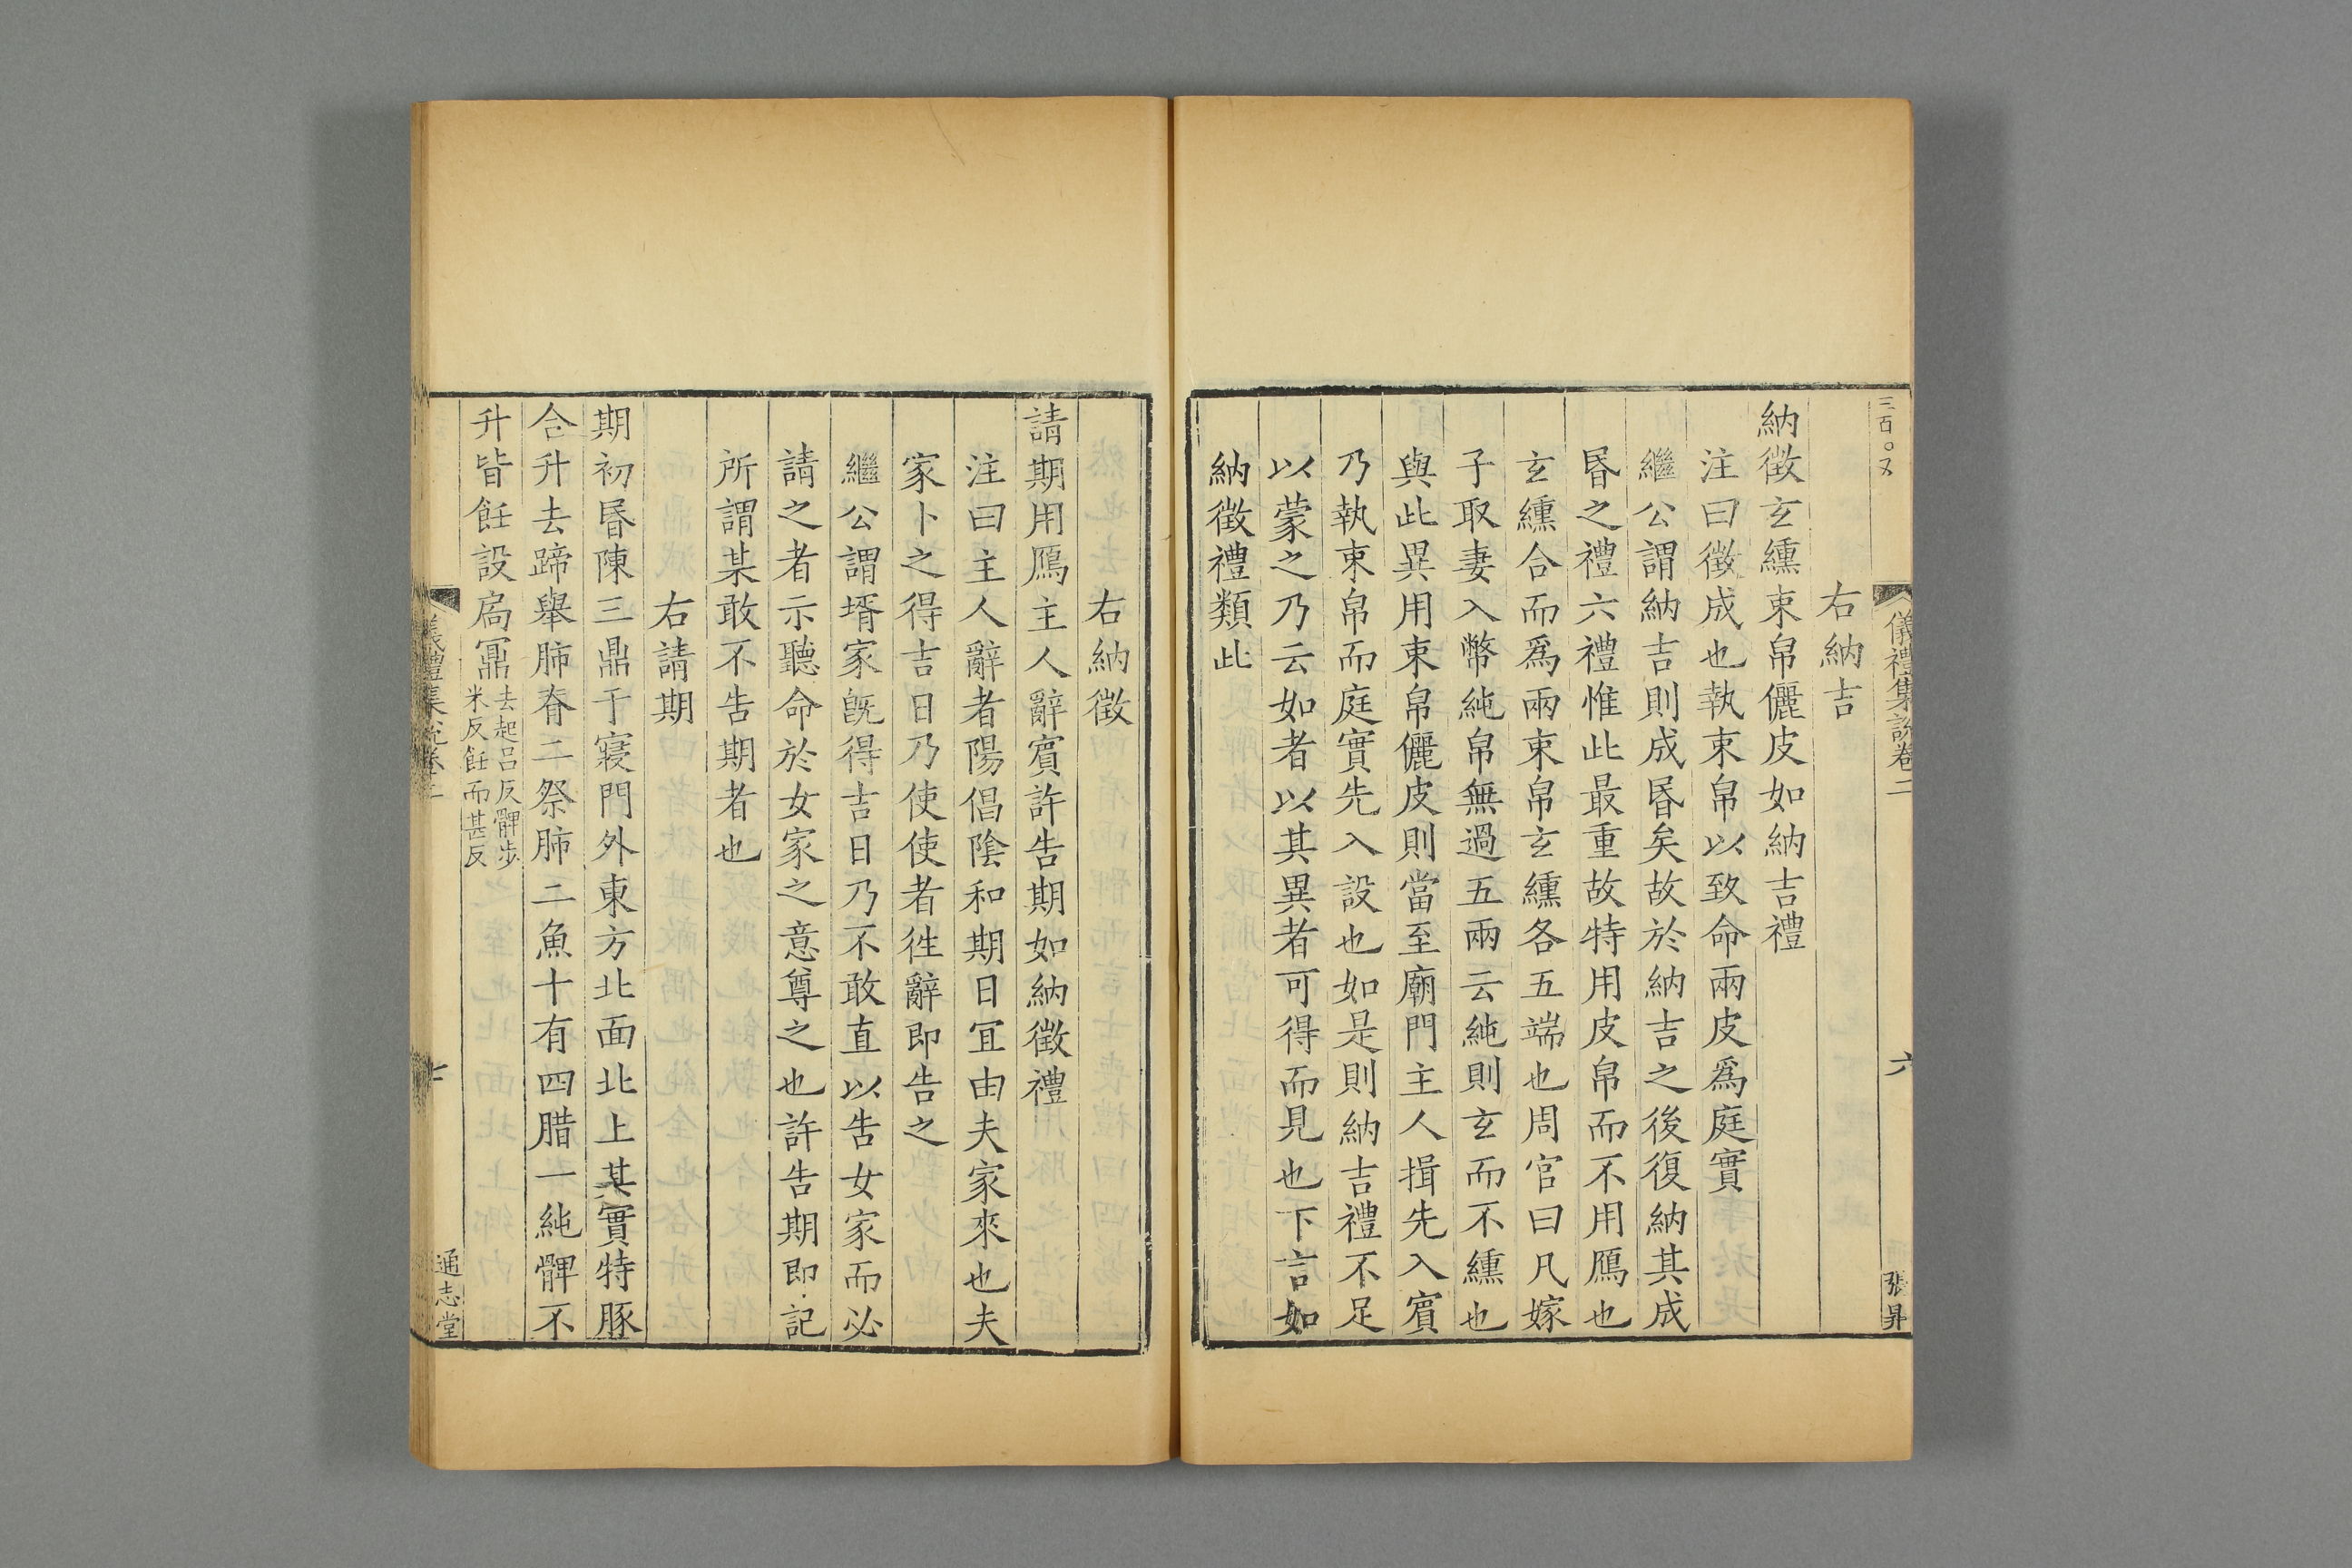 三百〇又
儀禮集説卷二
六
張昇
右納吉
納徵玄纁束帛儷皮如納吉禮
注曰徵成也執束帛以致命兩皮爲庭實
繼公謂納吉則成昬矣故於納吉之後復納其成
昬之禮六禮惟此最重故特用皮帛而不用鴈也
玄纁合而爲兩束帛玄纁各五端也周官曰凡嫁
子取妻入幣純帛無過五兩云純則玄而不纁也
與此異用束帛儷皮則當至廟門主人揖先入賓
乃執束帛而庭實先入設也如是則納吉禮不足
以蒙之乃云如者以其異者可得而見也下言如
納徵禮類此
右納徵
請期用鴈主人辭賓許告期如納徵禮
注曰主人辭者陽倡陰和期日宜由夫家來也夫
家卜之得吉日乃使使者徃辭即告之
繼公謂壻家旣得吉日乃不敢直以告女家而必
請之者示聽命於女家之意尊之也許告期即記
所謂某敢不告期者也
右請期
期初昬陳三鼎于寢門外東方北面北上其實特豚
合升去蹄舉肺脊二祭肺二魚十有四腊一純髀不
升皆飪設扃鼏去起呂反髀步米反飪而甚反
儀禮集説卷二
七
通志堂